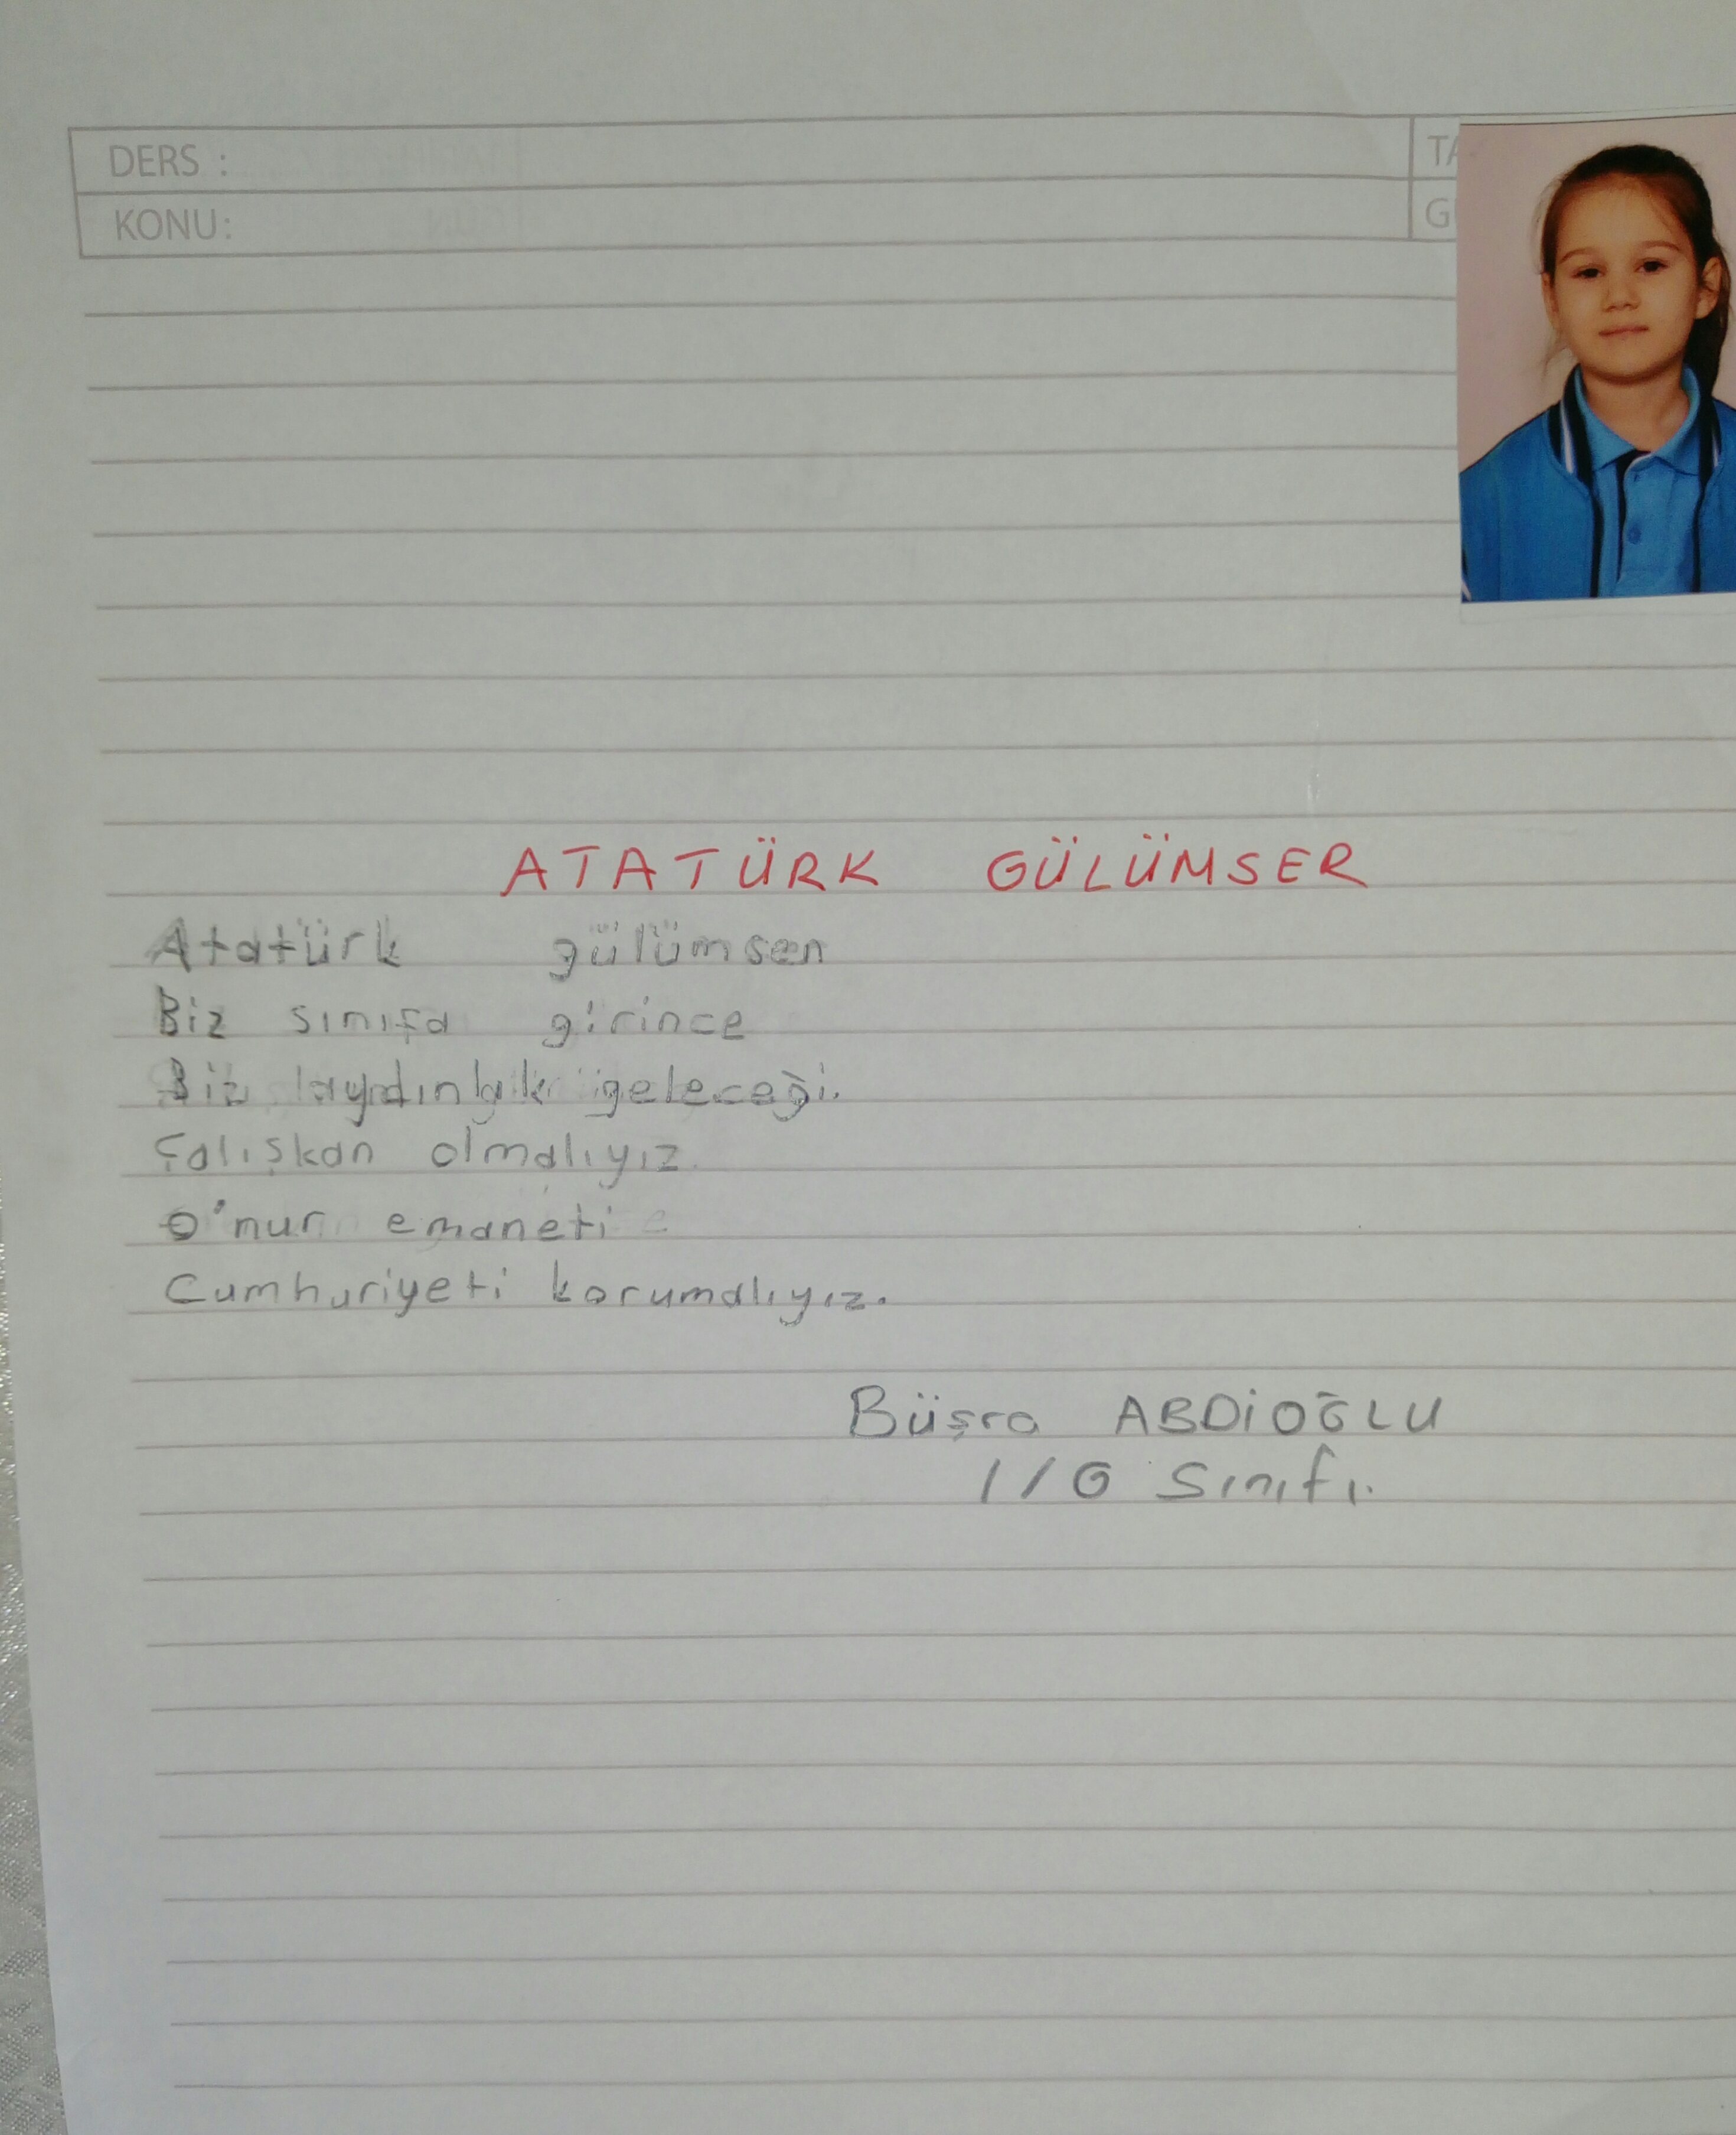 DERS :
KONU:
ATATÜRK GÜLÜMSER
Atatürk gülümsen
Biz sınıfa girince
Biz aydınlık geleceği.
Çalışkan olmalıyız.
O'nun emaneti
Cumhuriyeti korumalıyız.
Büşra ABDİOĞLU
1/G Sınıfı.